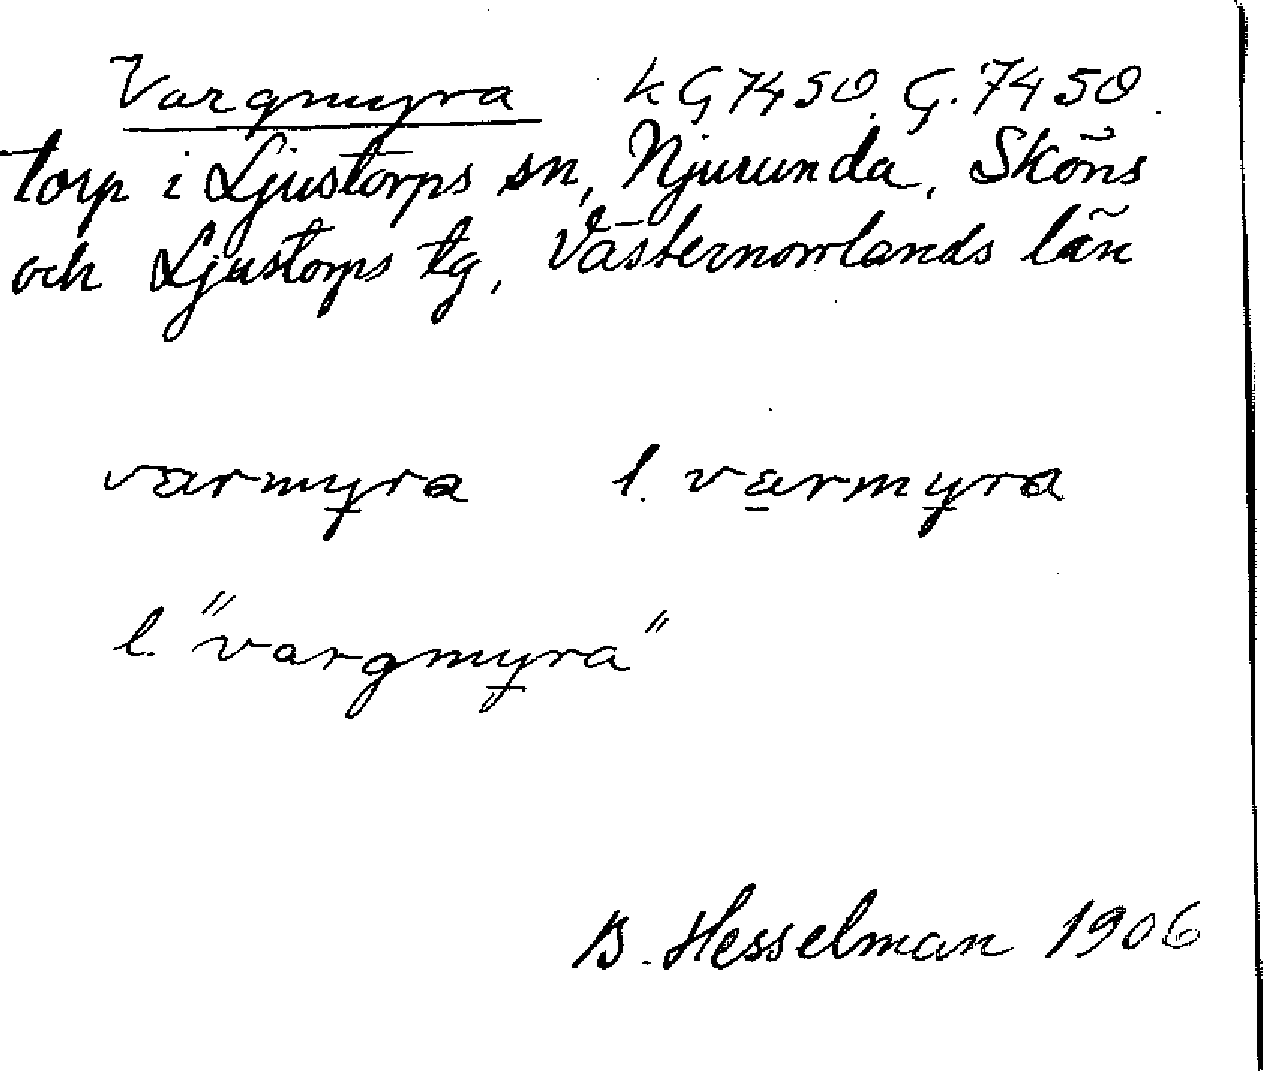 Vargmyra k G7450. G.7450.
torp i Ljustorps sn, Njurunda, Sköns
och Ljustorps tg, Västernorrlands län
varmyra l. varmyra
l. "vargmyra"
B. Hesselman 1906